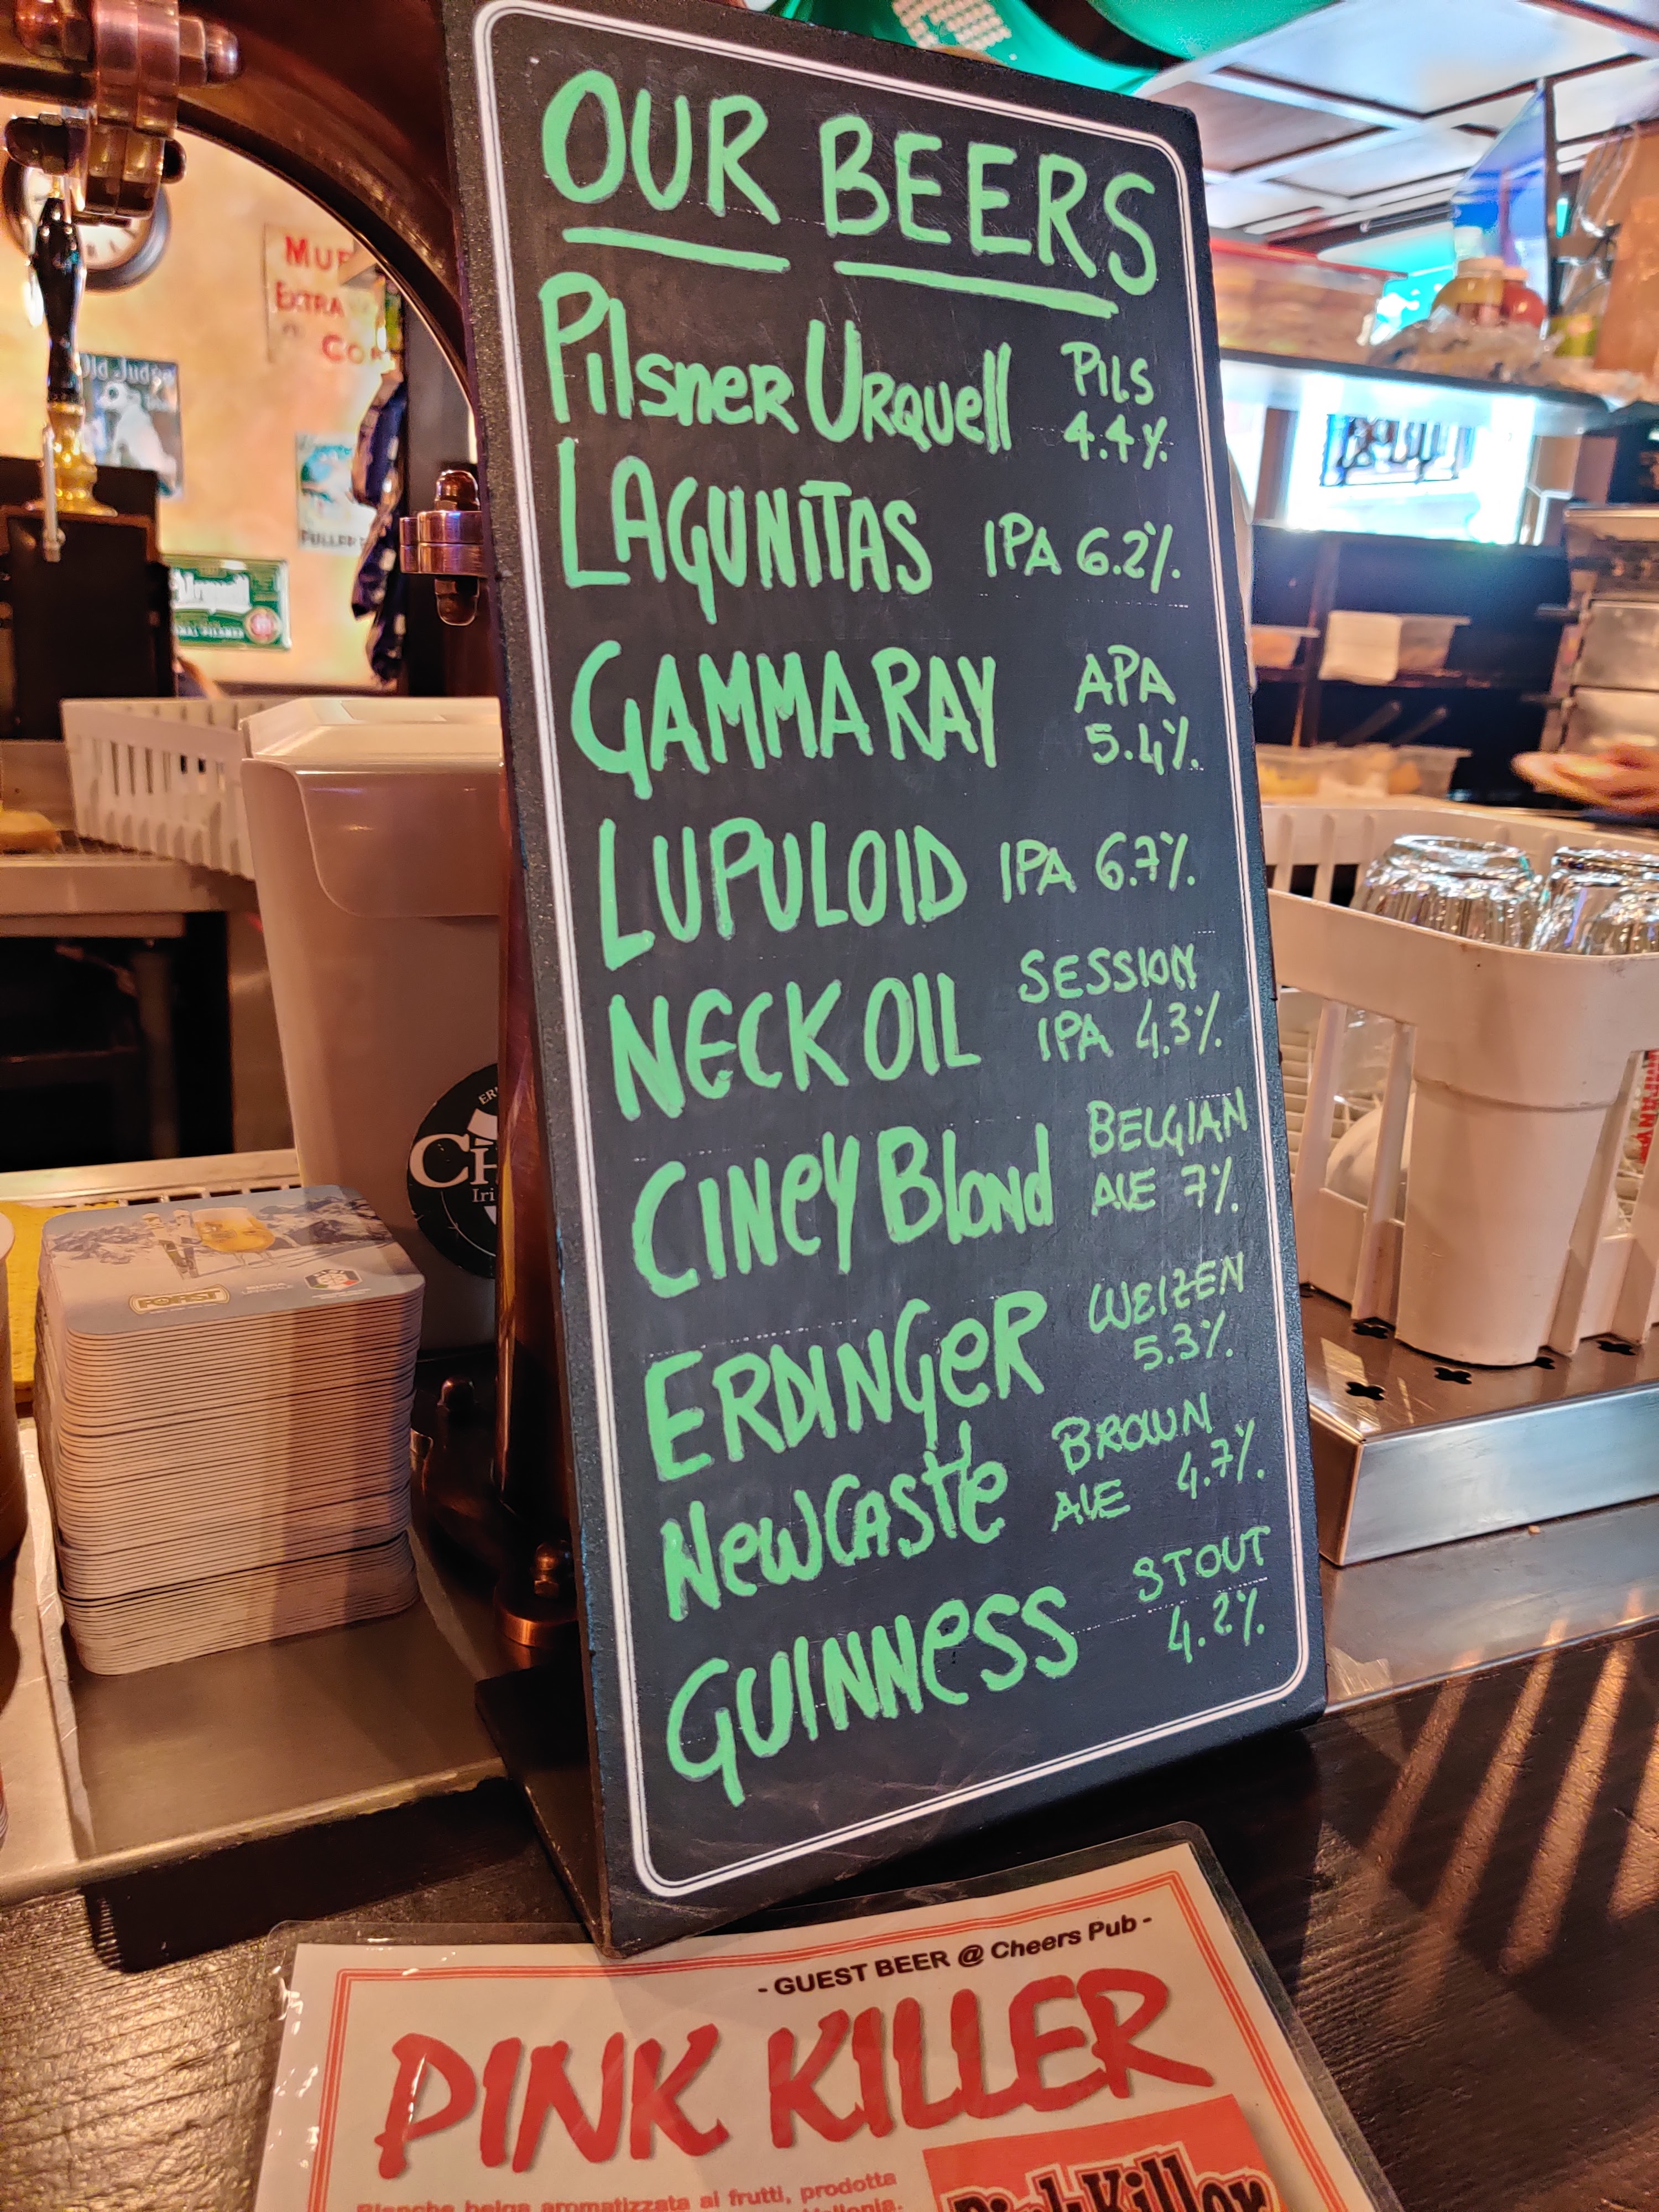 OUR BEERS
PIlsneR URQuell PILS 4.4%
LAGUNITAS IPA 6.2%
GAMMA RAY APA 5.4%
LUPULOID IPA 6.7%
NECK OIL SESSION IPA 4.3%
CINeY Blond BELGIAN ALE 7%
ERDINGeR WEIZEN 5.3%
NewCastle BROWN ALE 4.7%
GUINNeSS STOUT 4.2%
- GUEST BEER @ Cheers Pub -
PINK KILLER
Blanche belga aromatizzata ai frutti, prodotta
Pink Killer
Old Judge
EXTRA
FORST